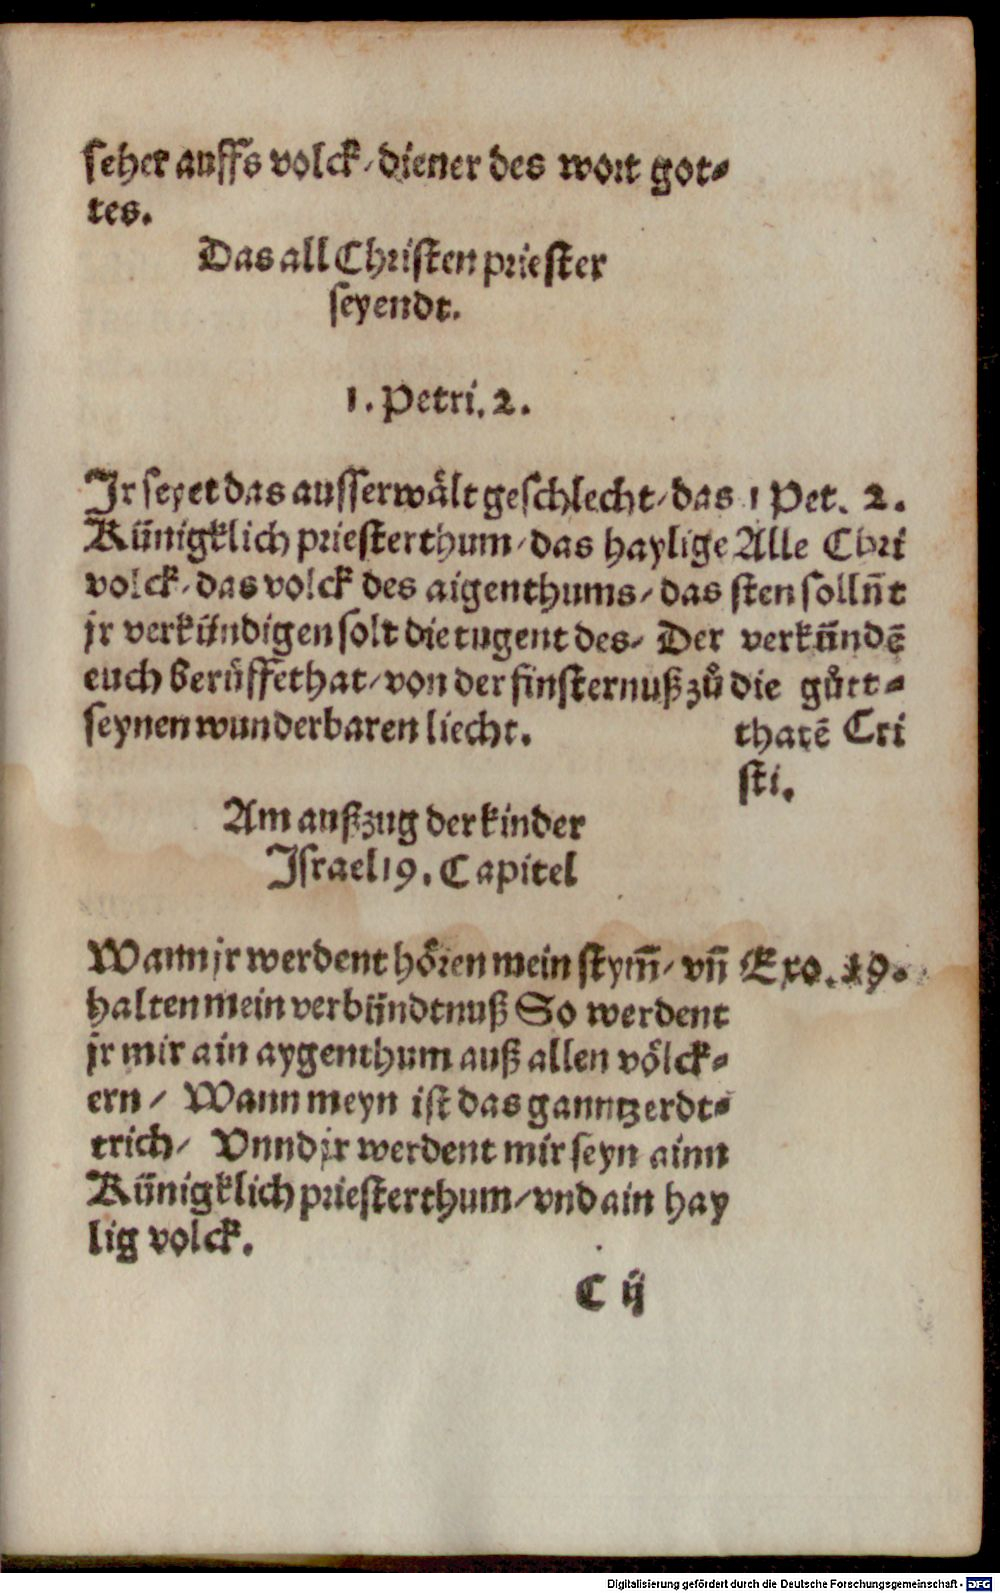 seher auffs volck / diener des wort got⸗
tes.
Das all Christen priester
seyendt.
1. Petri. 2.
Jr seyet das ausserwålt geschlecht / das
Künigklich priesterthum / das haylige
volck / das volck des aigenthums / das
jr verkündigen solt die tugent des / Der
euch berüffet hat / von der finsternuß zů
seynen wunderbaren liecht.
1 Pet. 2.
Alle Chri
sten sollñt
verkündē
die gůtt⸗
thatē Cri
sti.
Am außzug der kinder
Israel 19. Capitel
Wann jr werdent hören mein stym̄ / vn̄
halten mein verbündtnuß So werdent
jr mir ain aygenthum auß allen völck⸗
ern / Wann meyn ist das ganntz erdt⸗
trich / Vnnd jr werdent mir seyn ainn
Künigklich priesterthum / vnd ain hay
lig volck.
Exo. 19.
C ij
Digitalisierung gefördert durch die Deutsche Forschungsgemeinschaft - DFG